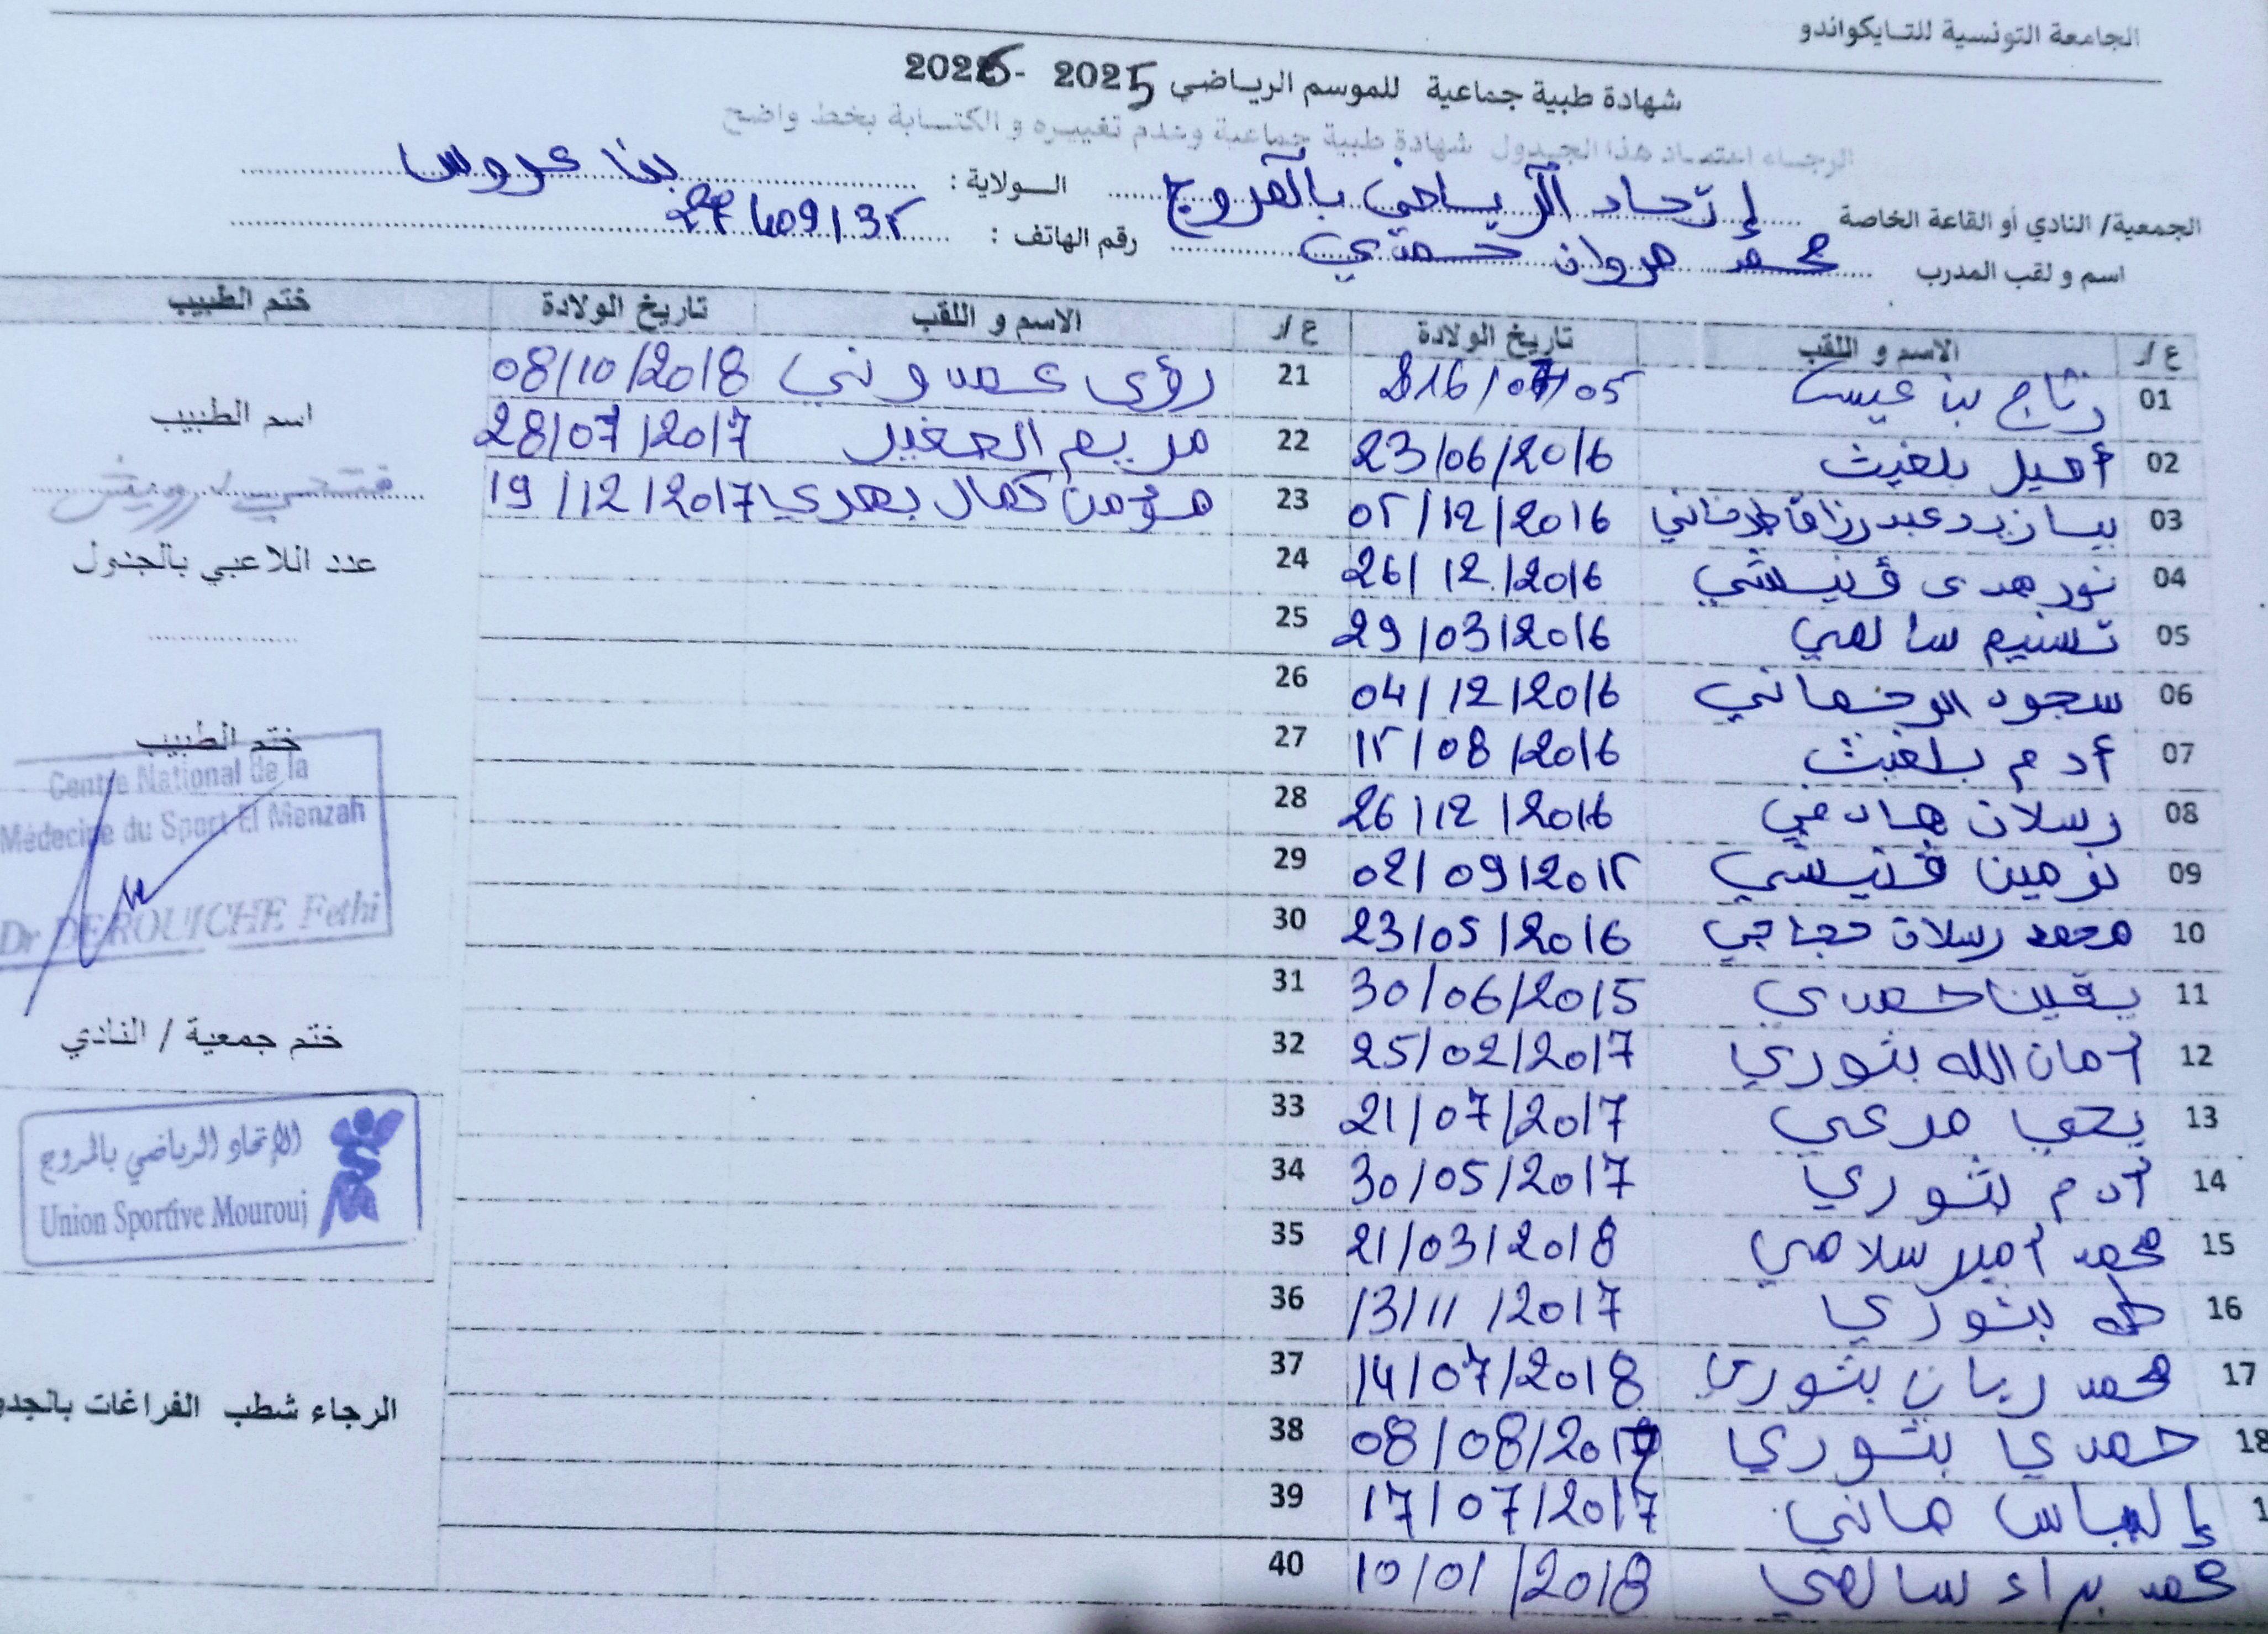 الجامعة التونسية للتايكواندو
شهادة طبية جماعية للموسم الرياضي 2025 - 2026
الرجاء اعتماد هذا الجدول شهادة طبية جماعية وعدم تغييره و الكتابة بخط واضح
الجمعية/ النادي أو القاعة الخاصة إتحاد الرياضي بالمروج الولاية : بنا عروس
اسم و لقب المدرب محمد مروان حمدي رقم الهاتف :
ع/ر الاسم و اللقب تاريخ الولادة ع/ر الاسم و اللقب تاريخ الولادة ختم الطبيب
01 رتاج بنا عيسى 21 رؤى عمدوني 08/10/2018
02 أميل بلغيث 23/06/2016 22 مريم الصغير 28/07/2017
03 عبد رزاق 05/12/2016 23 مؤمن كمال بهدي 19/12/2017
04 نور هدى ڨنيشي 26/12/2016 24
05 تسنيم سالمي 29/03/2016 25
06 سجود 04/12/2016 26
07 أدم بلغيث 15/08/2016 27
08 رسلان هادفي 26/12/2016 28
09 نرمين ڨنيشي 02/09/2015 29
10 محمد رسلان حجاجي 23/05/2016 30
11 يقين حمدي 30/06/2015 31
12 أمان الله بثوري 25/02/2017 32
13 يحي مرعي 21/07/2017 33
14 أدم بثوري 30/05/2017 34
15 محمد أمير سلامي 21/03/2018 35
16 طه بثوري 13/11/2017 36
17 محمد ريان بثوري 14/07/2018 37
18 حمدي بثوري 08/08/2017 38
1 إلياس هاني 17/07/2017 39
محمد براء سالمي 10/01/2018 40
اسم الطبيب
فتحي درويش
عدد اللاعبي بالجدول
ختم الطبيب
Centre National de la
Médecine du Sport El Menzah
Dr DEROUICHE Fethi
ختم جمعية / النادي
الإتحاد الرياضي بالمروج
Union Sportive Mourouj
الرجاء شطب الفراغات بالجدو